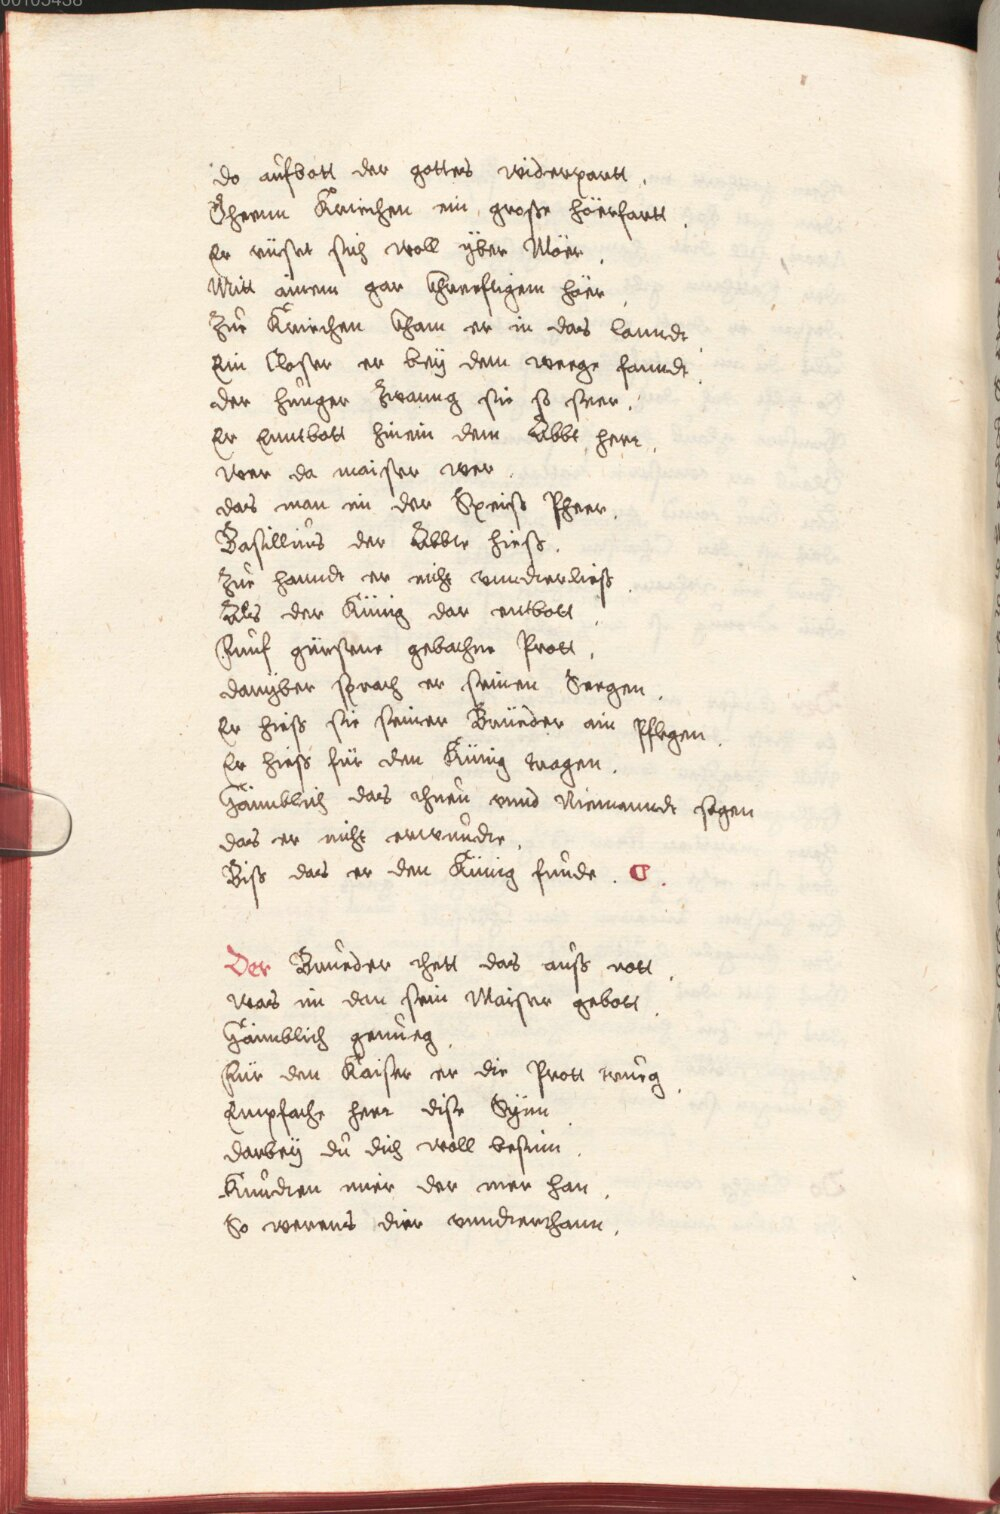 00105438
do aufbott der gottes widerpartt.
Gheenn Kriechen ein große höerfartt
Er rüsst sich woll yber Möer.
Mitt ainem gar Chrefftigem höer.
Zue Kriechen Cham er in das lanndt.
Ein Closter er bey dem weege fanndt.
der hunger Zwanng sie so seer.
Er Enntbott hinein dem Abbt herr.
wer da maister wer.
das man im der Speiß Pheer.
Basillius der Abbte hieß.
Zue hanndt er nicht vnnderließ.
Als der Künig dar entbott.
Funf gürstene gebachne Prott.
daryber sprach er seinen Seegen.
Er hieß sie seiner Brüeder ain Pflegen.
Er hieß für den Künig tragen.
Hainblich das Ihnen vnnd Niemanndt sagen
das er nicht erwundte.
Biß das er den Künig funde.
Der Brueder thett das auß nott.
was im dan sein Maister gebott.
Hainblich genueg.
Für den Kaiser er die Prott trueg.
Empfache herr dise Synn.
darbey du dich woll besinn.
Kundten mier der mer han.
So werens dier vnnderthann.